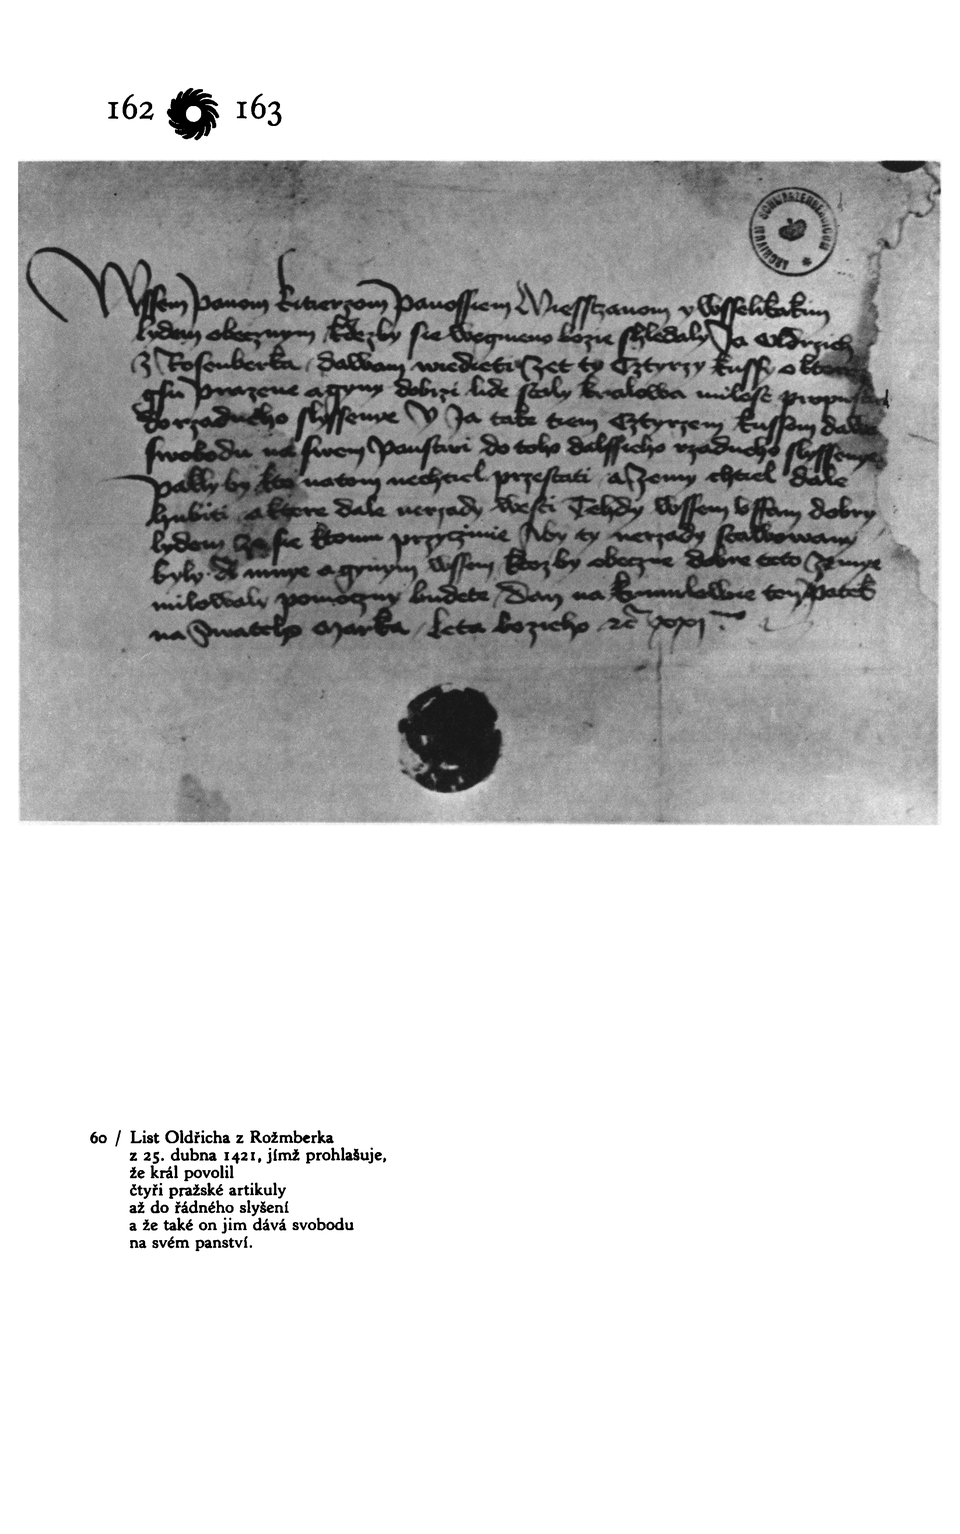 162 163
ARCHIVUM SCHWARZENBERGICUM
Wssem panom Ritierzom panossiem Miesstzanom y wsselikakim
lydem obecznym ktozby sie wegmeno bozie shledaly Ja Oldrzich
z Rosenberka dawam wiedieti zet ty Cztyrzy kussy o ktere
gsu prazene a gyny dobrzi lide staly kralowa milost
do rzadneho slyssenye y Ja take tiem Cztyrzem kussom
swobodu na swem panstwi do toho dalssieho rzadneho slyssenye
paklly by kto na tom nechtiel przestati a zemy chtiel dale
hubiti a ktere dale nerzady westi Tehdy wssem dobry
lydem ze sie ktomu przyczinie Aby ty nerzady stawowany
byly A mnye a gynym wssem ktozby obeczne dobre teto zemye
milowaly pomoczny budete Dan na Krumlowie ten patek
na swateho Marka Leta bozieho xxi
60 / List Oldřicha z Rožmberka
z 25. dubna 1421, jímž prohlašuje,
že král povolil
čtyři pražské artikuly
až do řádného slyšení
a že také on jim dává svobodu
na svém panství.